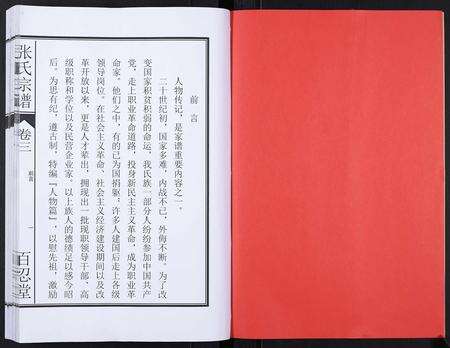 前言
人物传记，是家谱重要内容之一。
二十世纪初，国家多难，内战不已，外侮不断。为了改
变国家积贫积弱的命运，我氏族一部分人纷纷参加中国共产
党，走上职业革命道路，投身新民主主义革命，成为职业革
命家。他们之中，有的已为国捐躯；许多人建国后走上各级
领导岗位。在社会主义革命、社会主义经济建设期间以及改
革开放以来，更是人才辈出，拥现出一批现职领导干部、高
级职称和学位以及民营企业家。以上族人的德绩足以感今昭
后。为思有纪，遵古制，特编『人物篇』，以慰先祖，激励
张氏宗谱
卷三
前言
一
百忍堂